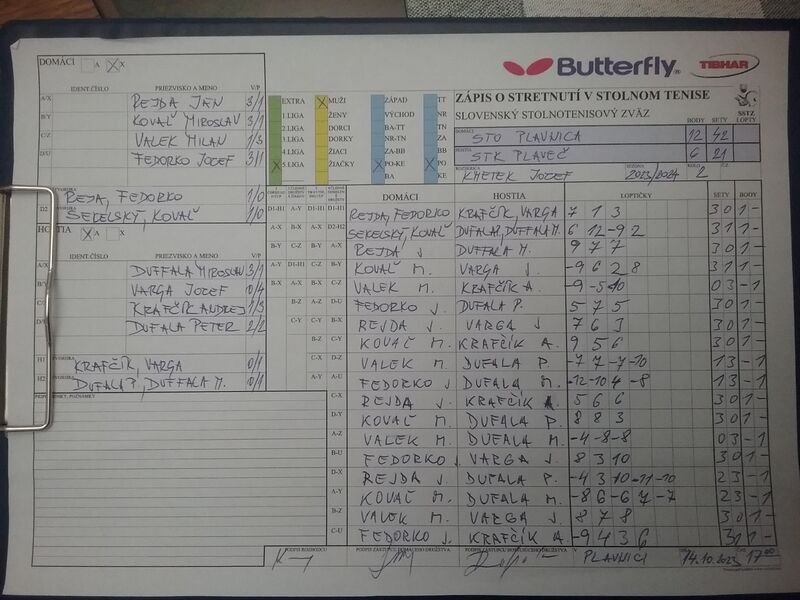 DOMÁCI A X
IDENT.ČÍSLO PRIEZVISKO A MENO V/P
A/X REJDA JÁN 3/1
B/Y KOVAĽ MIROSLAV 3/1
C/Z VALEK MILAN 1/3
D/U FEDORKO JOZEF 3/1
REJDA, FEDORKO 1/0
SEKELSKÝ, KOVAĽ 1/0
HOSTIA A X
IDENT.ČÍSLO PRIEZVISKO A MENO V/P
DUFFALA MIROSLAV 3/1
VARGA JOZEF 0/4
KRAFČÍK ANDREJ 1/3
DUFALA PETER 2/2
H1 KRAFČÍK, VARGA 0/1
H2 DUFALA P, DUFFALA M. 0/1
Butterfly TIBHAR
EXTRA MUŽI ZÁPAD TT
1 LIGA ŽENY VÝCHOD NR
2 LIGA DORCI BA-TT TN
3 LIGA DORKY NR-TN ZA
4 LIGA ŽIACI ZA-BB BB
5 LIGA ŽIAČKY PO-KE PO
BA KE
ZÁPIS O STRETNUTÍ V STOLNOM TENISE
SLOVENSKÝ STOLNOTENISOVÝ ZVÄZ
SSTZ
BODY SETY LOPTY
DOMÁCI STO PLAVNICA 12 42
HOSTIA STK PLAVEČ 6 21
KMETEK JOZEF 2023/2024 2
DOMÁCI HOSTIA LOPTIČKY SETY BODY
D1-H1 REJDA, FEDORKO KRAFČÍK, VARGA 7 1 3 3 0 1 -
D2-H2 SEKELSKÝ, KOVAĽ DUFALAP, DUFFALA M. 6 12 -9 2 3 1 1 -
A-X REJDA J. DUFFALA M. 9 7 7 3 0 1 -
B-Y KOVAĽ M. VARGA J. -9 6 2 8 3 1 1 -
C-Z VALEK M. KRAFČÍK A. -9 -5 -10 0 3 - 1
D-U FEDORKO J. DUFALA P. 5 7 5 3 0 1 -
B-X REJDA J. VARGA J. 7 6 3 3 0 1 -
C-Y KOVAĽ M. KRAFČÍK A. 9 5 6 3 0 1 -
D-Z VALEK M. DUFALA P. -7 7 -7 -10 1 3 - 1
A-U FEDORKO J. DUFALA M. -12 -10 4 -8 1 3 - 1
C-X REJDA J. KRAFČÍK A. 5 6 6 3 0 1 -
D-Y KOVAĽ M. DUFALA P. 8 8 3 3 0 1 -
A-Z VALEK M. DUFALA M. -4 -8 -8 0 3 - 1
B-U FEDORKO J. VARGA J. 8 3 10 3 0 1 -
D-X REJDA J. DUFALA P. -4 3 10 -11 -10 2 3 - 1
A-Y KOVAĽ M. DUFALA M. -8 6 -6 7 -7 2 3 - 1
B-Z VALEK M. VARGA J. 8 7 8 3 0 1 -
C-U FEDORKO J. KRAFČÍK A. -9 4 3 6 3 1 1 -
PODPIS ROZHODCU PODPIS ZÁSTUPCU DOMÁCEHO DRUŽSTVA PODPIS ZÁSTUPCU HOSŤUJÚCEHO DRUŽSTVA V PLAVNICI 14.10.2023 17:00